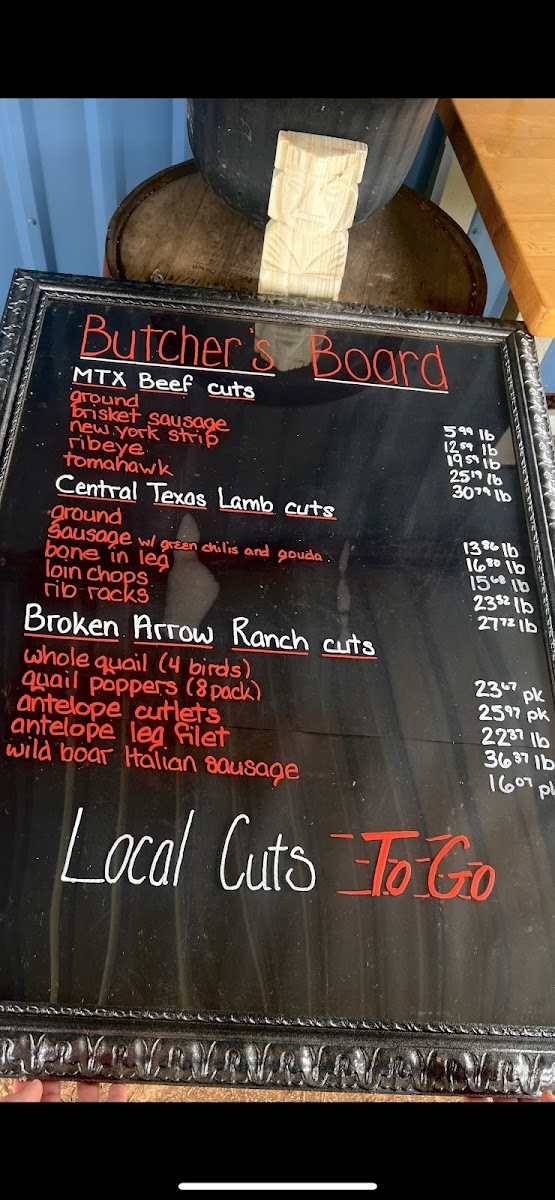 Butcher's Board
MTX Beef cuts
ground 5⁹⁹ lb
brisket sausage 12⁵⁹ lb
new york strip 19⁵⁹ lb
ribeye 25¹⁹ lb
tomahawk 30⁷⁹ lb
Central Texas Lamb cuts
ground 13⁸⁶ lb
sausage w/ green chilis and gouda 16⁸⁰ lb
bone in leg 15⁶⁸ lb
loin chops 23⁵² lb
rib racks 27⁷² lb
Broken Arrow Ranch cuts
whole quail (4 birds) 23⁶⁷ pk
quail poppers (8 pack) 25⁹⁷ pk
antelope cutlets 22³⁷ lb
antelope leg filet 36³⁷ lb
wild boar Italian sausage 16⁰⁷ pk
Local Cuts To Go